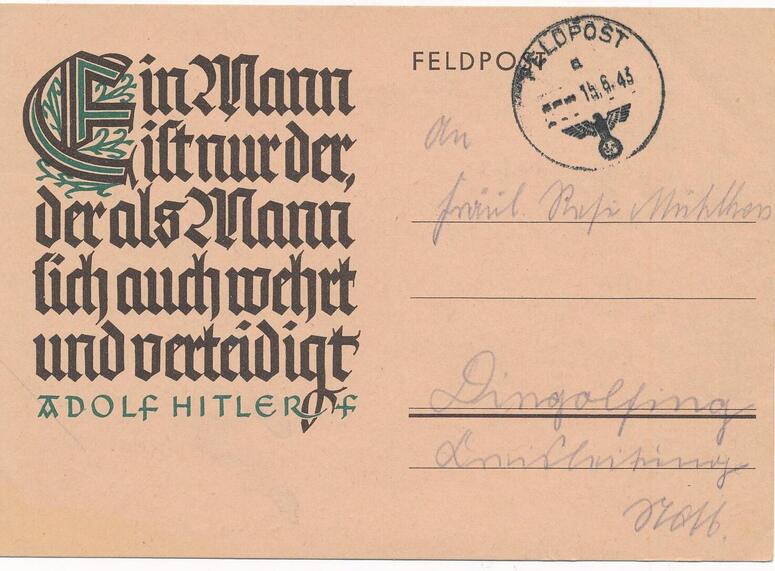 Ein Mann
ist nur der,
der als Mann
sich auch wehrt
und verteidigt
ADOLF HITLER
FELDPOST
FELDPOST
a
15.6.43
An
Fräul. Rosi
Dingolfing
Kreisleitung